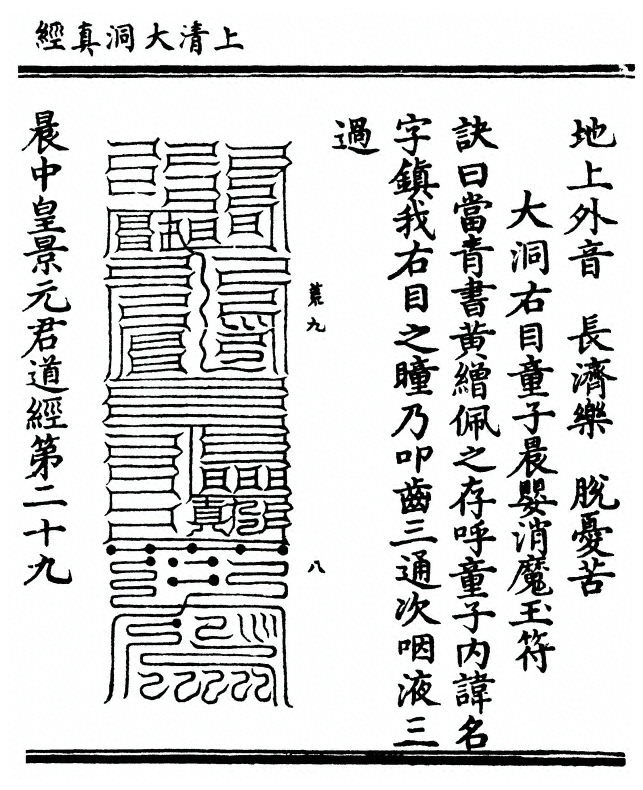 上清大洞真經
地上外音　長濟樂　脫憂苦
大洞右目童子晨嬰消魔玉符
訣曰當青書黃繒佩之存呼童子內諱名
字鎮我右目之瞳乃叩齒三通次咽液三
過
蕋九
八
晨中皇景元君道經第二十九